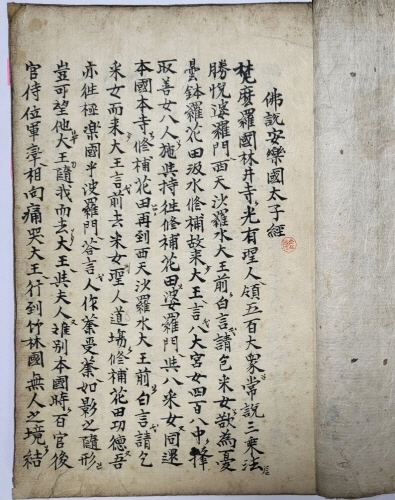 佛說安樂國太子經
梵麽羅國林井寺光有聖人領五百大衆常說三乘法
勝悅波羅門西天沙羅水大王前白言請乞采女欲爲憂
曇鉢羅花田汲水修補故来大王言八大宮女四百八中擇
取善女八人施與持徃修補花田波羅門與八采女同還
本國本寺修補花田再到西天沙羅水大王前白言請乞
采女而来大王言前去采女聖人道場修補花田功德吾
亦徃極樂國乎波羅門答言人作業受業如影之隨形
豈可望他大王隨我而去大王與夫人難别本國時百官後
官侍位軍相向痛哭大王行到竹林國無人之境結